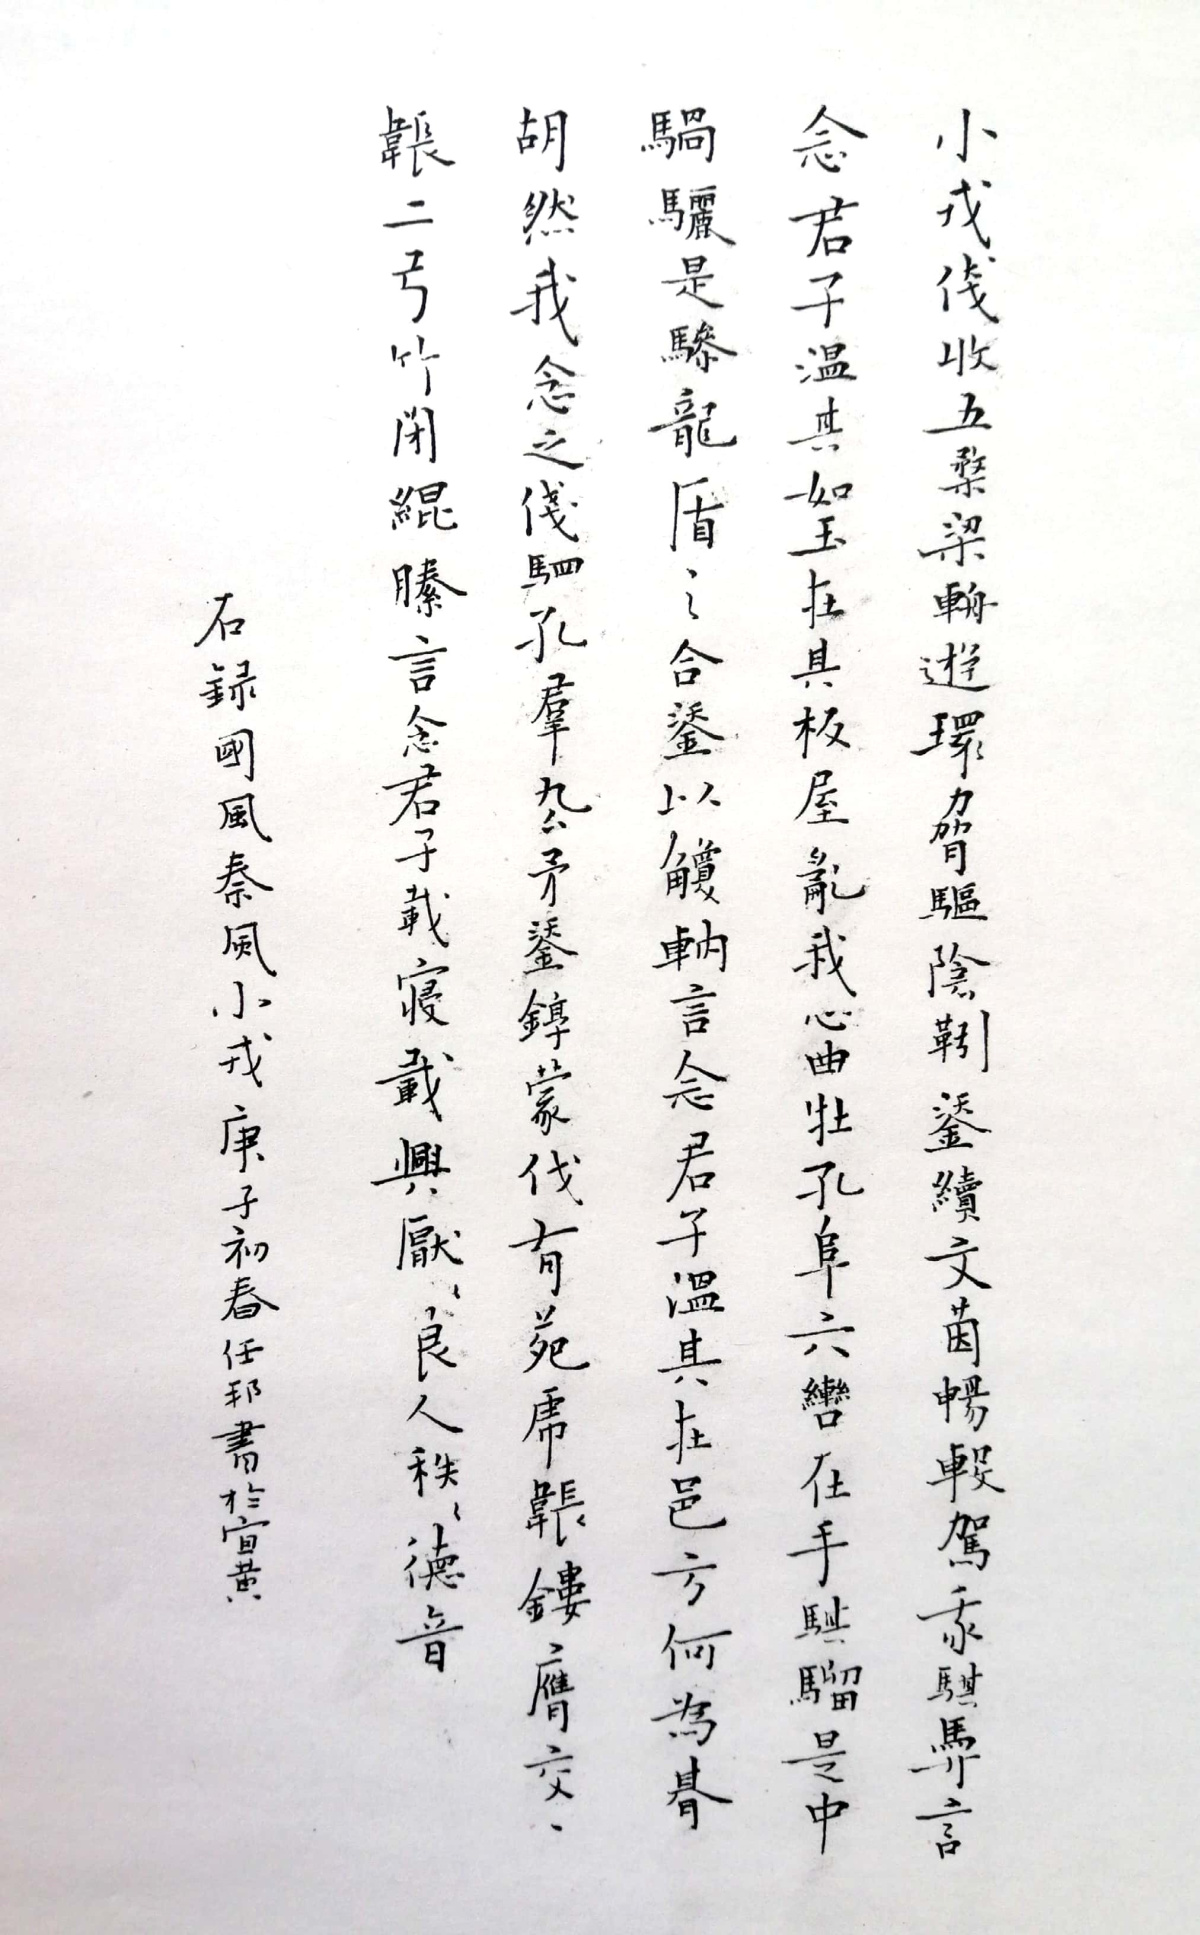 小戎俴收五楘梁輈遊環脅驅陰靷鋈續文茵暢轂駕我騏馵言
念君子溫其如玉在其板屋亂我心曲牡孔阜六轡在手騏騮是中
騧驪是驂龍盾之合鋈以觼軜言念君子溫其在邑方何為期
胡然我念之俴駟孔羣厹矛鋈錞蒙伐有苑虎韔鏤膺交、
韔二弓竹閉緄縢言念君子載寢載興厭、良人秩、德音
右録國風秦風小戎庚子初春任邦書於宜黃